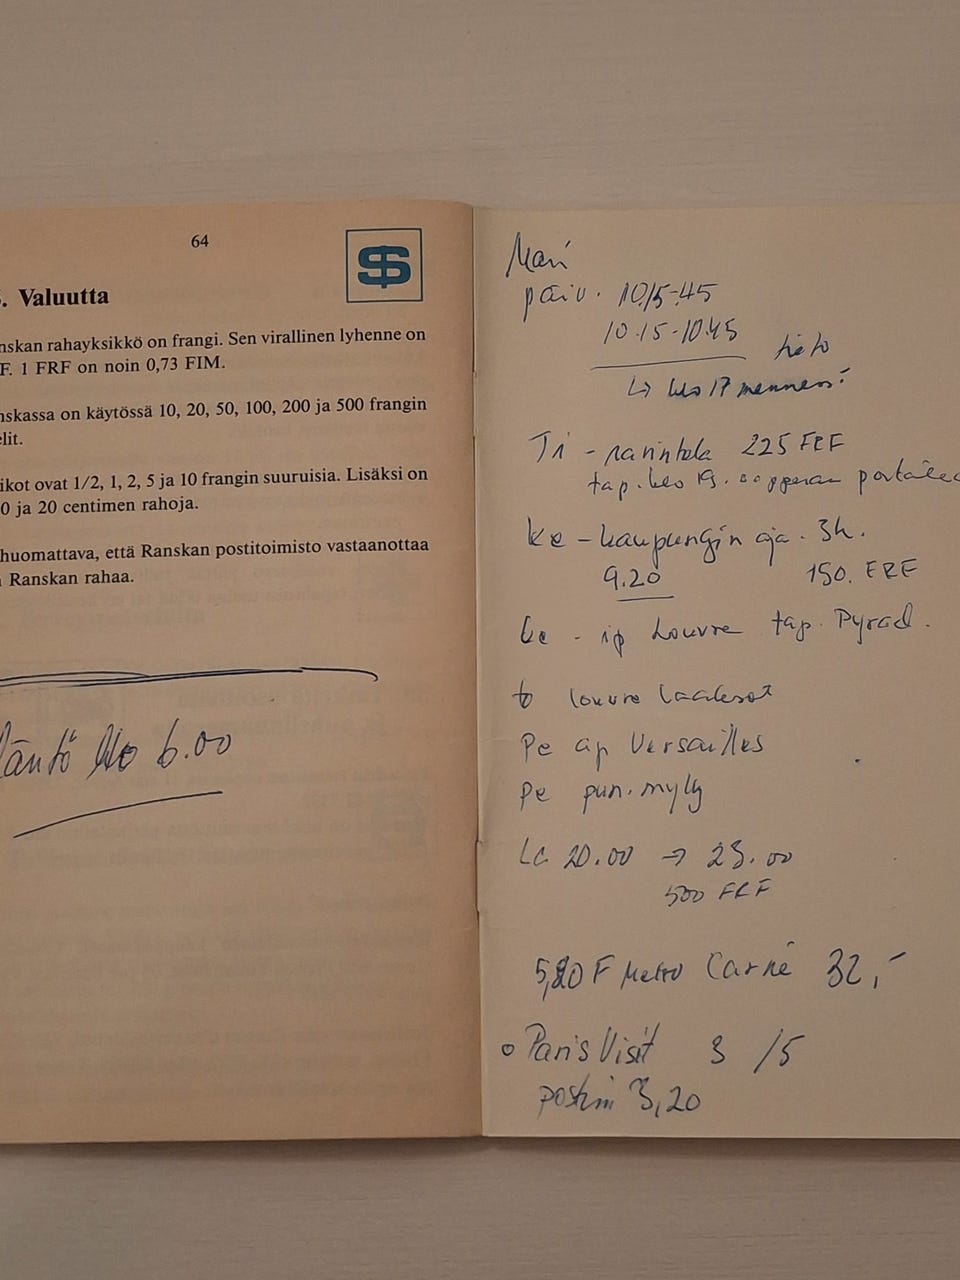 64
. Valuutta
nskan rahayksikkö on frangi. Sen virallinen lyhenne on
F. 1 FRF on noin 0,73 FIM.
nskassa on käytössä 10, 20, 50, 100, 200 ja 500 frangin
elit.
ikot ovat 1/2, 1, 2, 5 ja 10 frangin suuruisia. Lisäksi on
0 ja 20 centimen rahoja.
huomattava, että Ranskan postitoimisto vastaanottaa
Ranskan rahaa.
klo 6.00
Mari
päiv. 10.15-45
10.15-10.45
tieto
↳ klo 17 mennessä
Ti - ravintola 225 FRF
tap. klo 19. oopperan
ke - kaupungin aja. 3h.
9.20 150. FRF
ke - ip Louvre tap. Pyrad.
to louvre
Pe ap Versailles
Pe pun. mylly
La 20.00 → 23.00
500 FRF
F Metro Carné 32,-
o Paris Visit 3 /5
postim 3,20